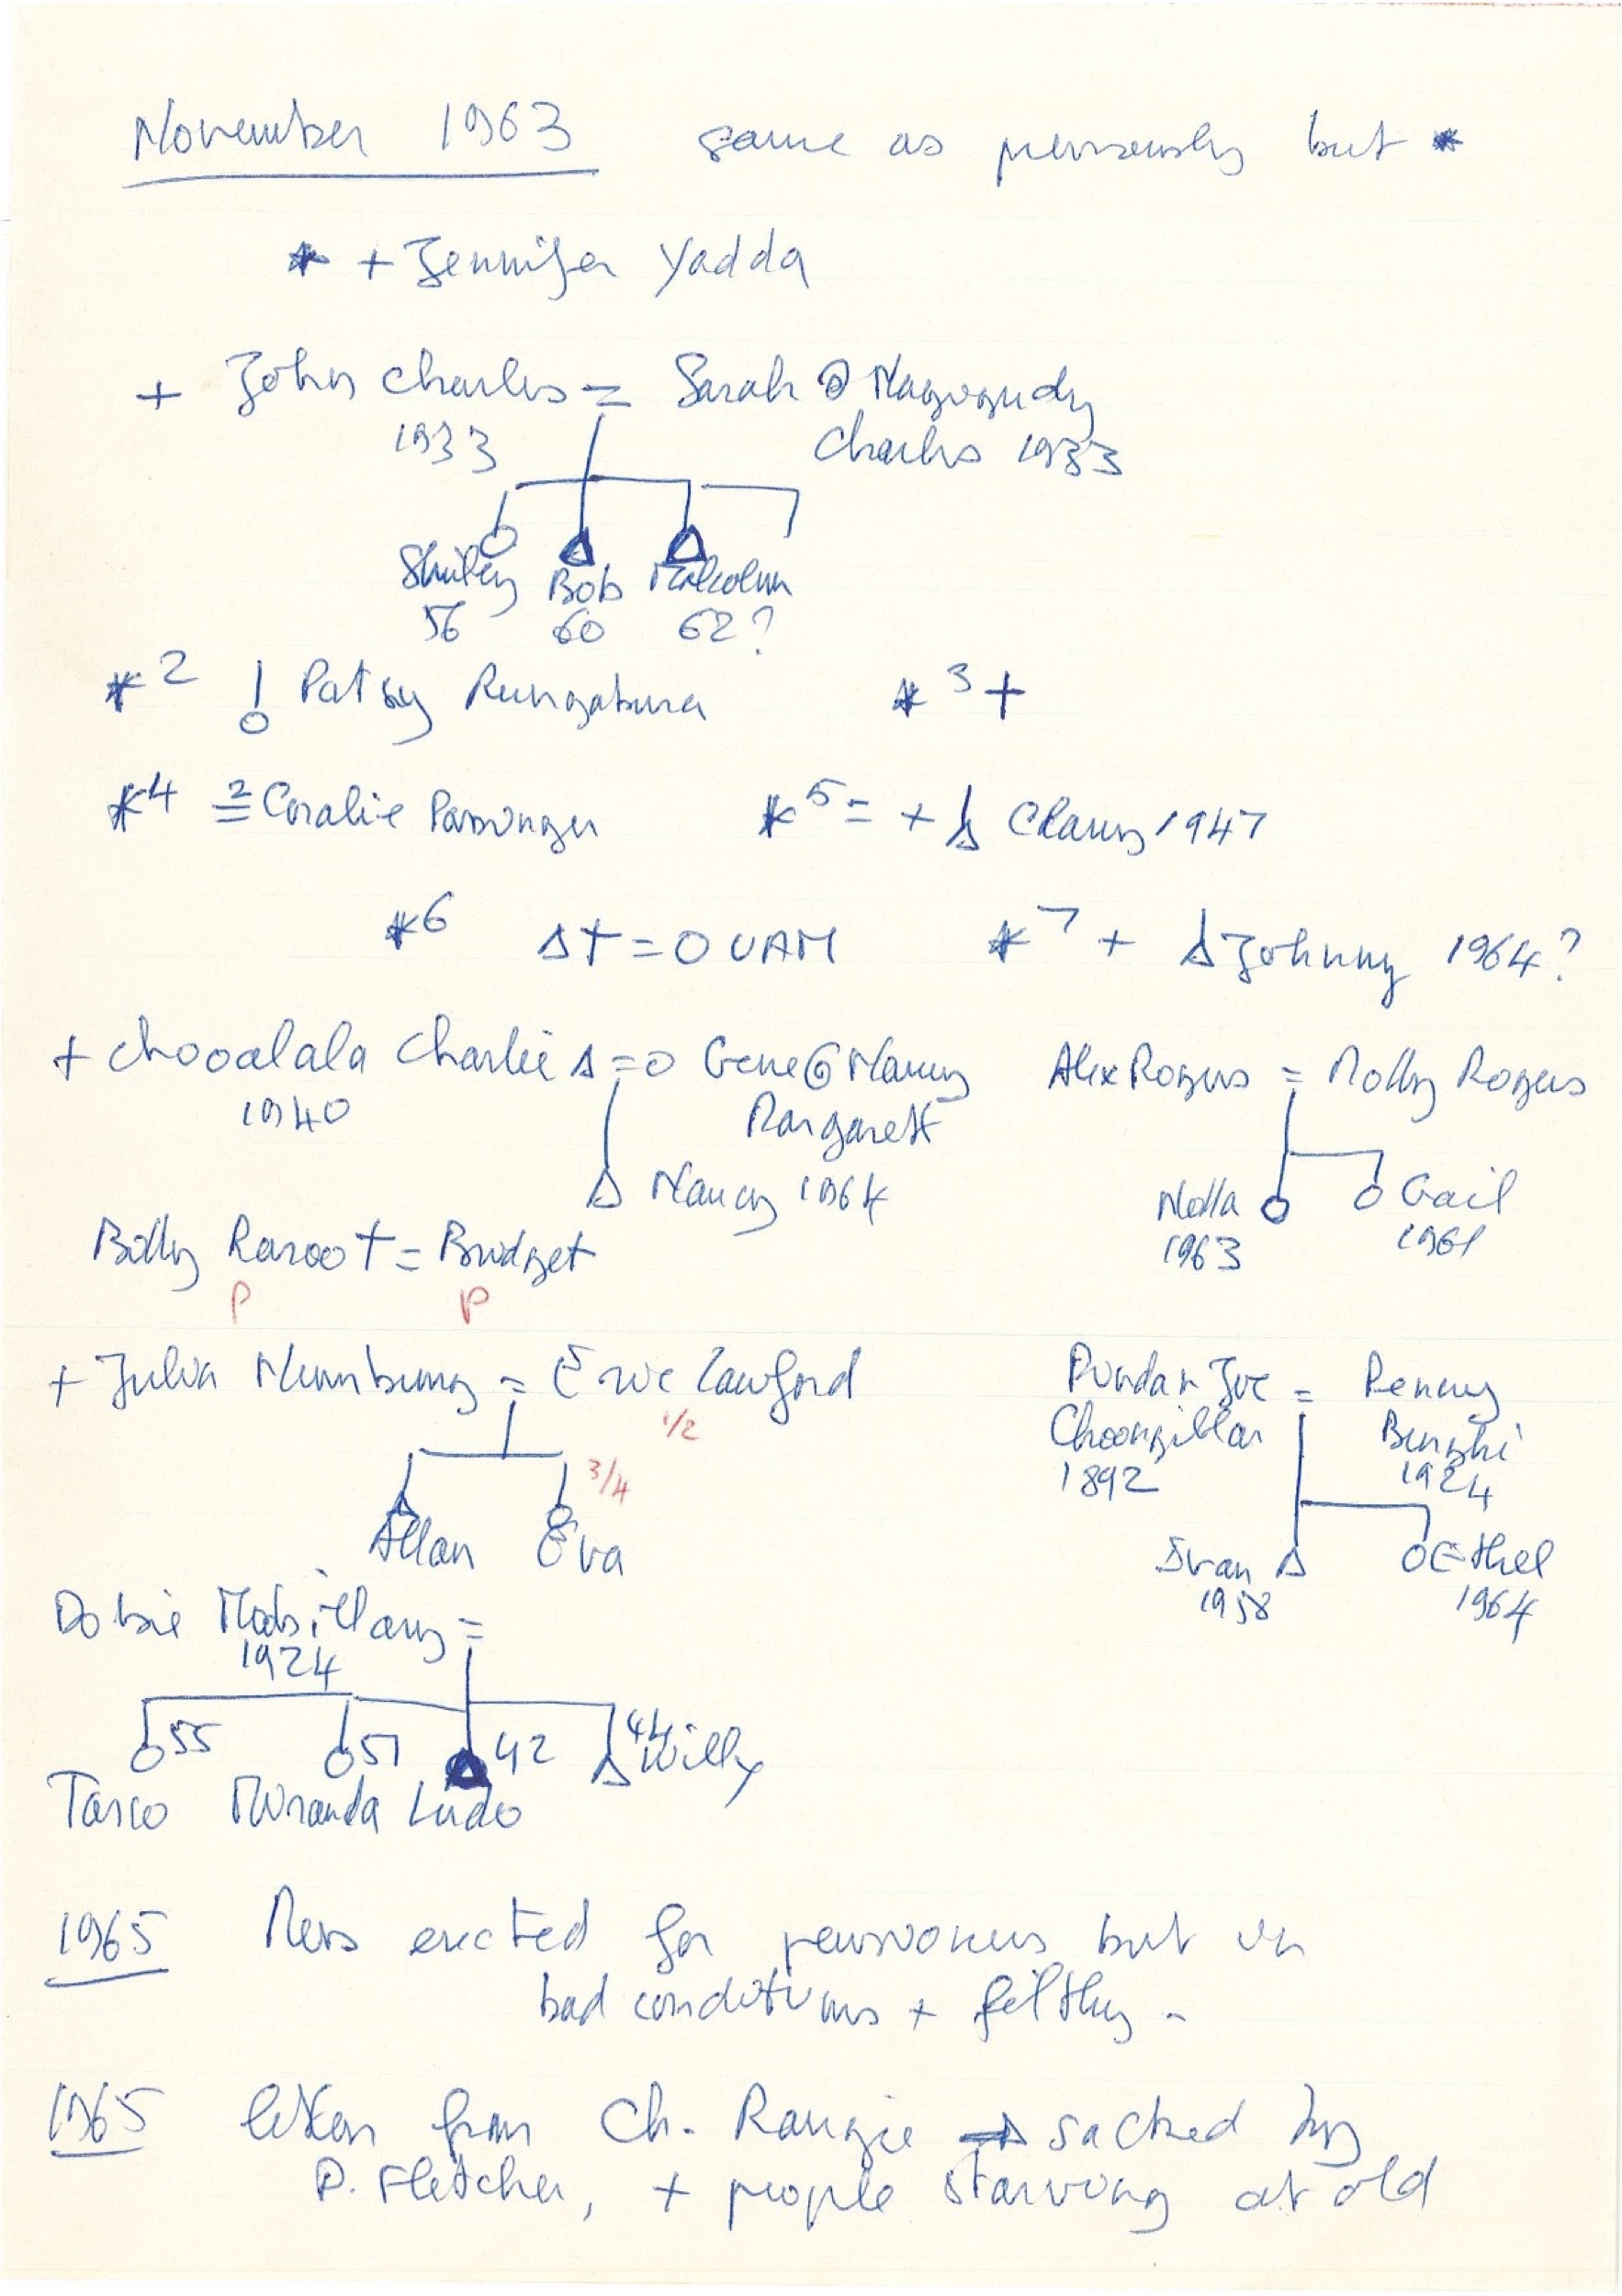 November 1963 same as previously but *
* + Jennifer Yadda
+ John Charles = Sarah @
1933 Charles 1933
Shirley Bob Malcolm
56 60 62?
*2 Patsy *3 +
*4 2= Coralie *5 = + 1947
*6 Δ† = O UAM *7 + Δ Johnny 1964?
+ Chooalala Charlie Δ = O Gene @ Nancy Alex Rogers = Molly Rogers
1940 Margaret
Δ Nancy 1964 Nolla O O Gail
1963 1961
Billy † = Bridget
P P
+ Julia = Eric Lawford Joe = Penny
1/2
1892 1924
3/4
Allan Eva Ivan Δ O Ethel
1958 1964
Dobie =
1924
55 51 42 44 Willy
Miranda Ludo
1965 erected for pensioners but in
bad conditions + filthy -
1965 letter from Ch. → sacked by
P. Fletcher, + people starving at old